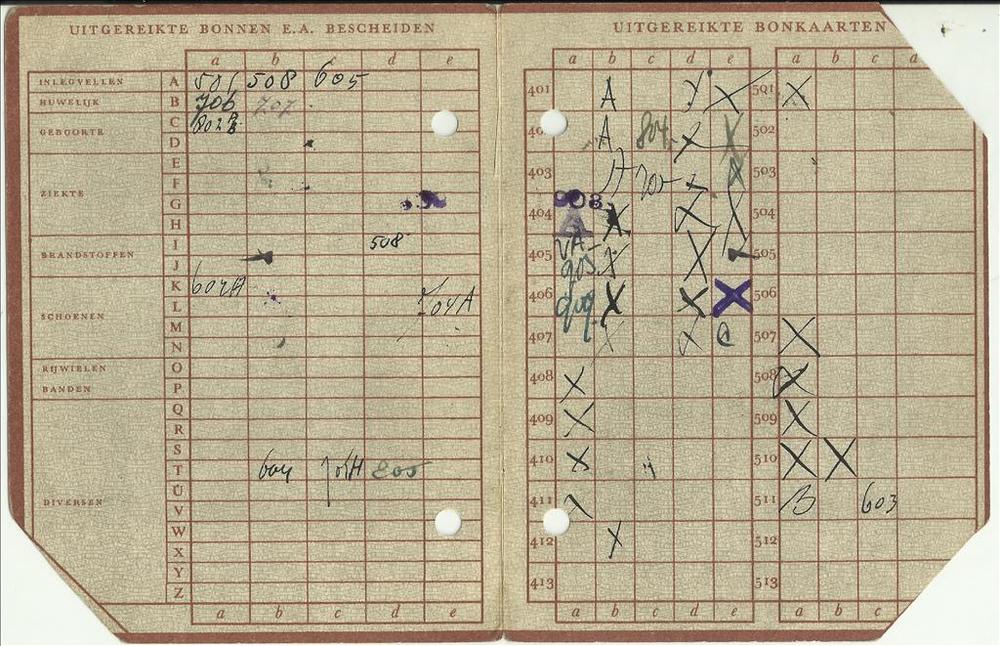 UITGEREIKTE BONNEN E.A. BESCHEIDEN
a b c d e
INLEGVELLEN A 501 508 605
HUWELIJK B 706 707
C 802
GEBOORTE
D
E
ZIEKTE F
G
H
I 508
BRANDSTOFFEN
J
K 604A
SCHOENEN L 704A
M
N
RIJWIELEN O
BANDEN P
Q
R
S
T 604 805
U
DIVERSEN V
W
X
Y
Z
a b c d e
UITGEREIKTE BONKAARTEN
a b c d e a b c d
401 A X 501 X
A 804 X X 502
403 X X 503
404 X X X 504
405 VA 905 X X 505
406 X X X 506
407 X X 507 X
408 X 508 X
409 X 509 X
410 X 510 X X
411 511 B 603
412 X 512
413 513
a b c d e a b c